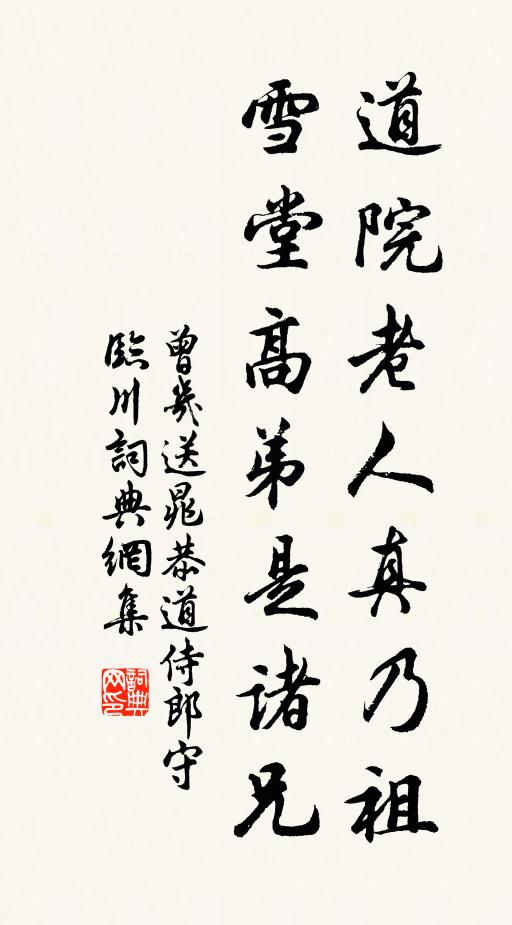 道院老人真乃祖
雪堂高弟是諸兄
曾幾送晁恭道侍郎守
臨川詞典網集
詞典网印